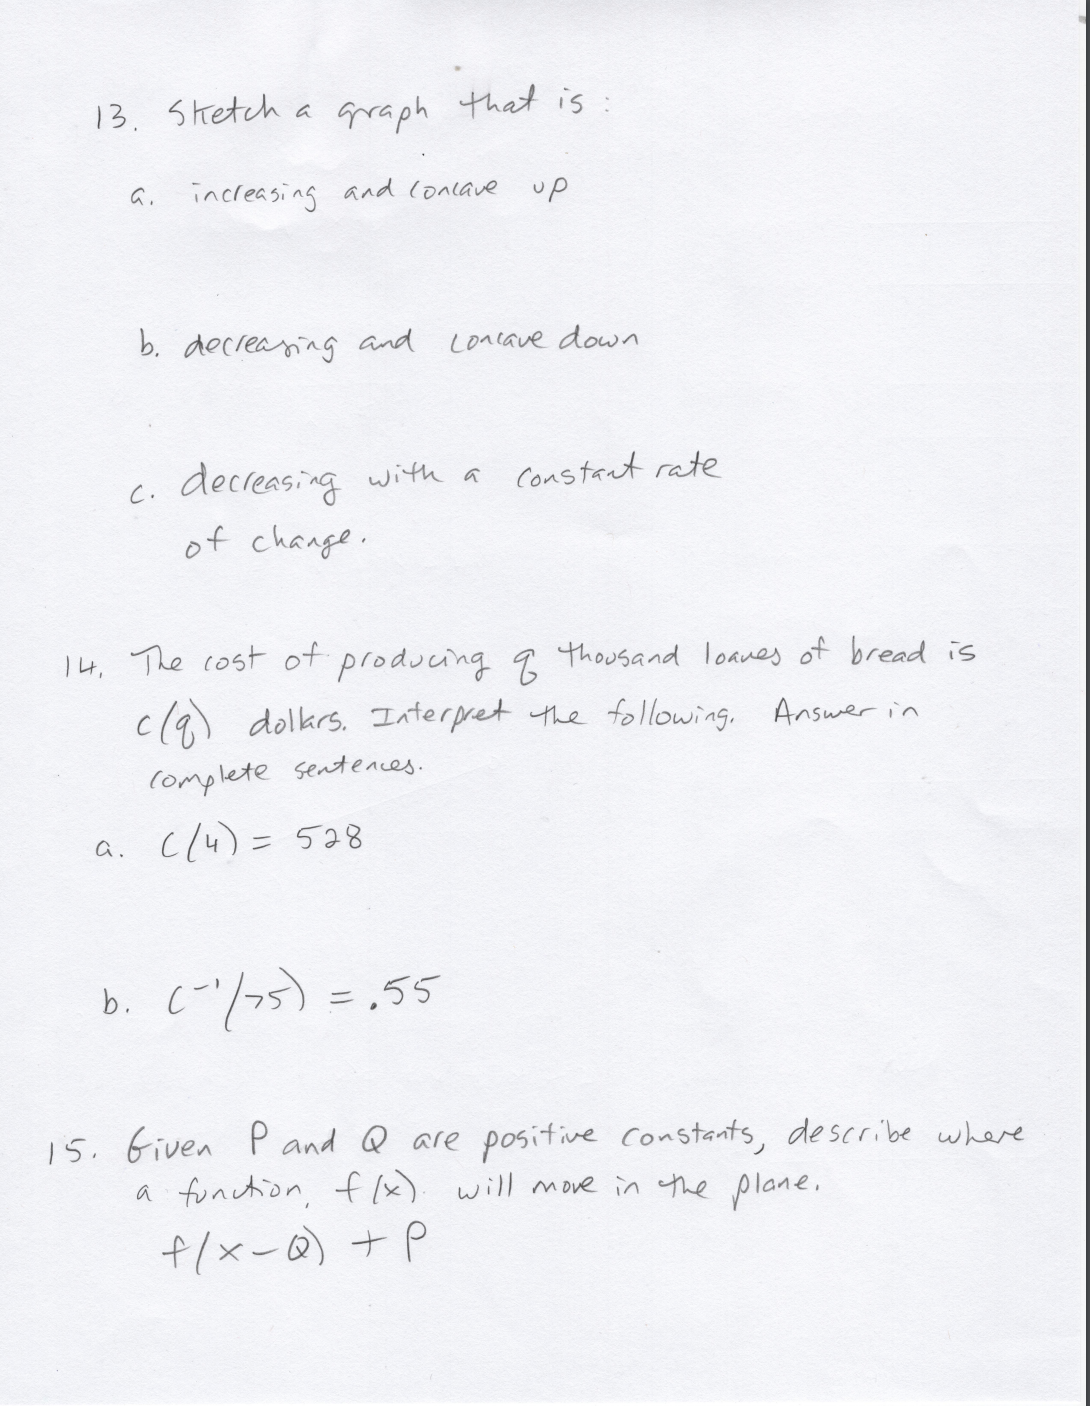 13. Sketch a graph that is:
a. increasing and concave up
b. decreasing and concave down
c. decreasing with a constant rate
of change.
14. The cost of producing q thousand loaves of bread is
C(q) dollars. Interpret the following. Answer in
complete sentences.
a. C(4) = 528
b. C⁻¹(75) = .55
15. Given P and Q are positive constants, describe where
a function, f(x) will move in the plane.
f(x-Q) + P